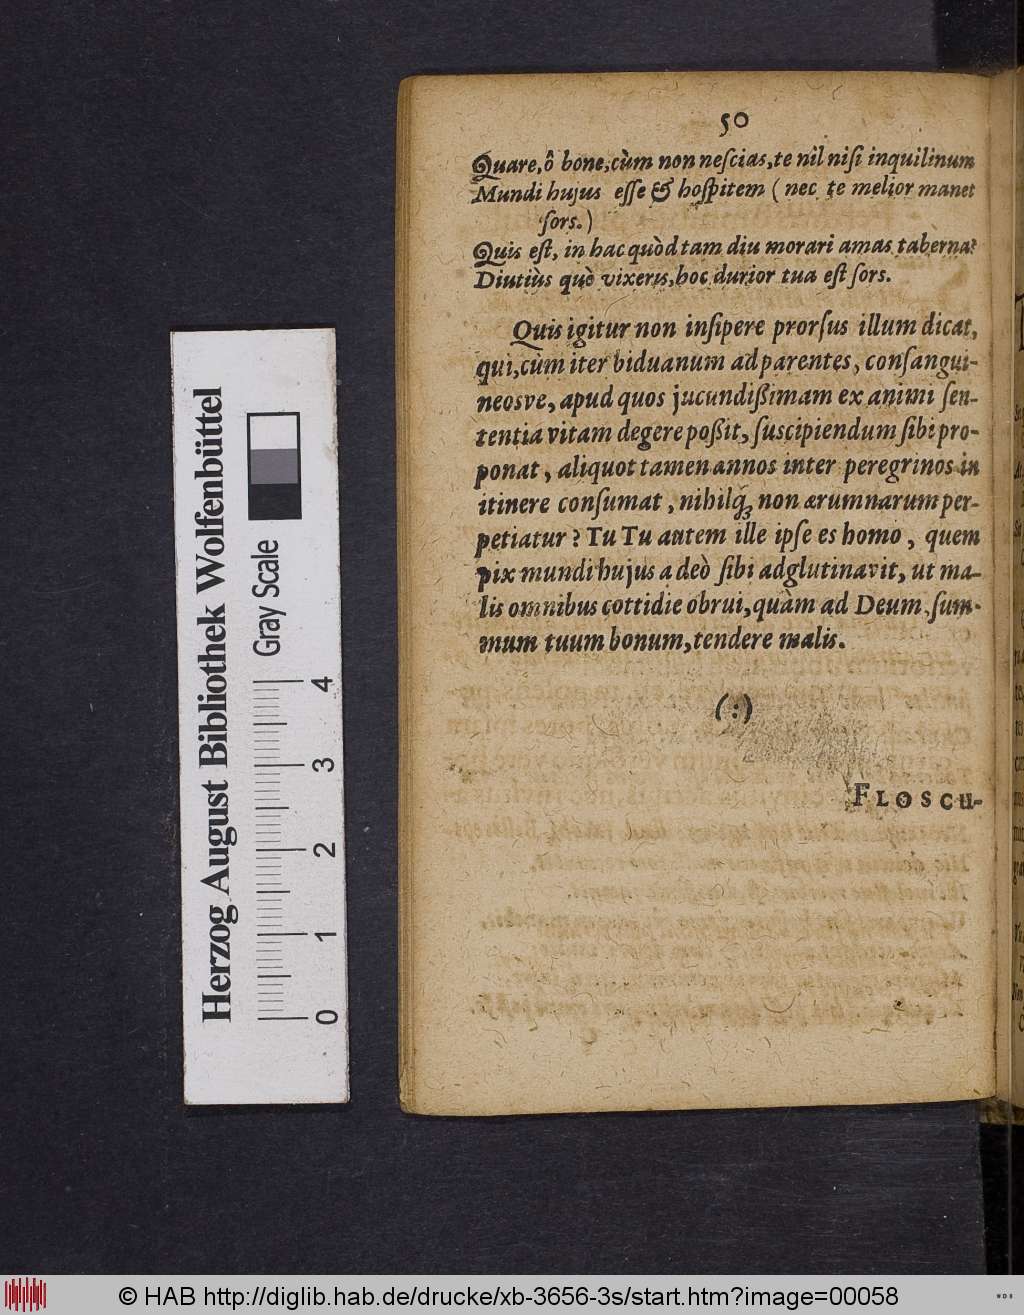 50
Quare, ô bone, cùm non neſcias, te nil niſi inquilinum
Mundi hujus eſſe & hoſpitem ( nec te melior manet
ſors. )
Quis eſt, in hac quòd tam diu morari amas taberna?
Diutiùs quò vixeris, hoc durior tua eſt ſors.
Quis igitur non inſipere prorſus illum dicat,
qui, cùm iter biduanum ad parentes, conſangui-
neosve, apud quos jucundißimam ex animi ſen-
tentia vitam degere poßit, ſuscipiendum ſibi pro-
ponat, aliquot tamen annos inter peregrinos in
itinere conſumat, nihilq́ꝫ non ærumnarum per-
petiatur? Tu Tu autem ille ipſe es homo, quem
pix mundi hujus adeò ſibi adglutinavit, ut ma-
lis omnibus cottidie obrui, quàm ad Deum, ſum-
mum tuum bonum, tendere malis.
(:)
FLOSCU-
Herzog August Bibliothek Wolfenbüttel
Gray Scale
0 1 2 3 4
© HAB http://diglib.hab.de/drucke/xb-3656-3s/start.htm?image=00058